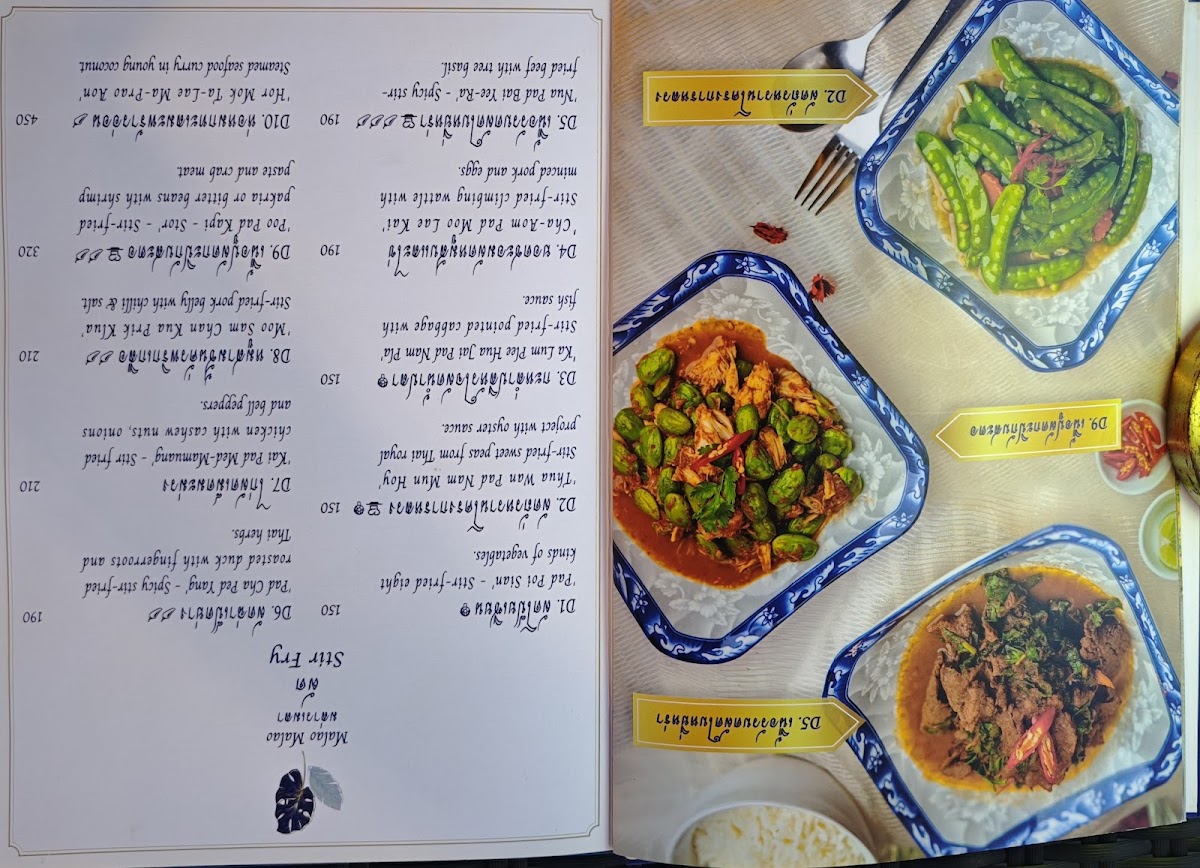 D5. เนื้อวัวผัดเผ็ดใบยี่หร่า
D9. เนื้อปูผัดกะปิกับสะตอ
D2. ผัดถั่วหวานโครงการหลวง
Malao Malao
ผัด
Stir Fry
D1. ผัดโป๊ยเซียน 150
'Pad Poi 'Sian' - Stir-fried eight
kinds of vegetables.
D2. ผัดถั่วหวานโครงการหลวง 150
'Thua Wan Pad Nam Mun Hoy'
Stir-fried sweet peas from Thai royal
project with oyster sauce.
D3. กะหล่ำปลีหัวใจผัดน้ำปลา 150
'Ka Lum Plee Hua Jai Pad Nam Pla'
Stir-fried pointed cabbage with
fish sauce.
D4. ยอดชะอมผัดหมูสับและไข่ 190
'Cha-Aom Pad Moo Lae Kai'
Stir-fried climbing wattle with
minced pork and eggs.
D5. เนื้อวัวผัดเผ็ดใบยี่หร่า 190
'Nua Pad Bai Yee-Ra' - Spicy stir-
fried beef with tree basil.
D6. ผัดฉ่าเป็ดย่าง 190
'Pad Cha Ped Yang' - Spicy stir-fried
roasted duck with fingerroots and
Thai herbs.
D7. ไก่ผัดเม็ดมะม่วง 210
'Kai Pad Med-Mamuang' - Stir fried
chicken with cashew nuts, onions
and bell peppers.
D8. หมูสามชั้นคั่วพริกเกลือ 210
'Moo Sam Chan Kua Prik Klua'
Stir-fried pork belly with chilli & salt.
D9. เนื้อปูผัดกะปิกับสะตอ 320
'Poo Pad Kapi - Stor' - Stir-fried
pakria or bitter beans with shrimp
paste and crab meat.
D10. ห่อหมกทะเลมะพร้าวอ่อน 450
'Hor Mok Ta-Lae Ma-Prao Aon'
Steamed seafood curry in young coconut.